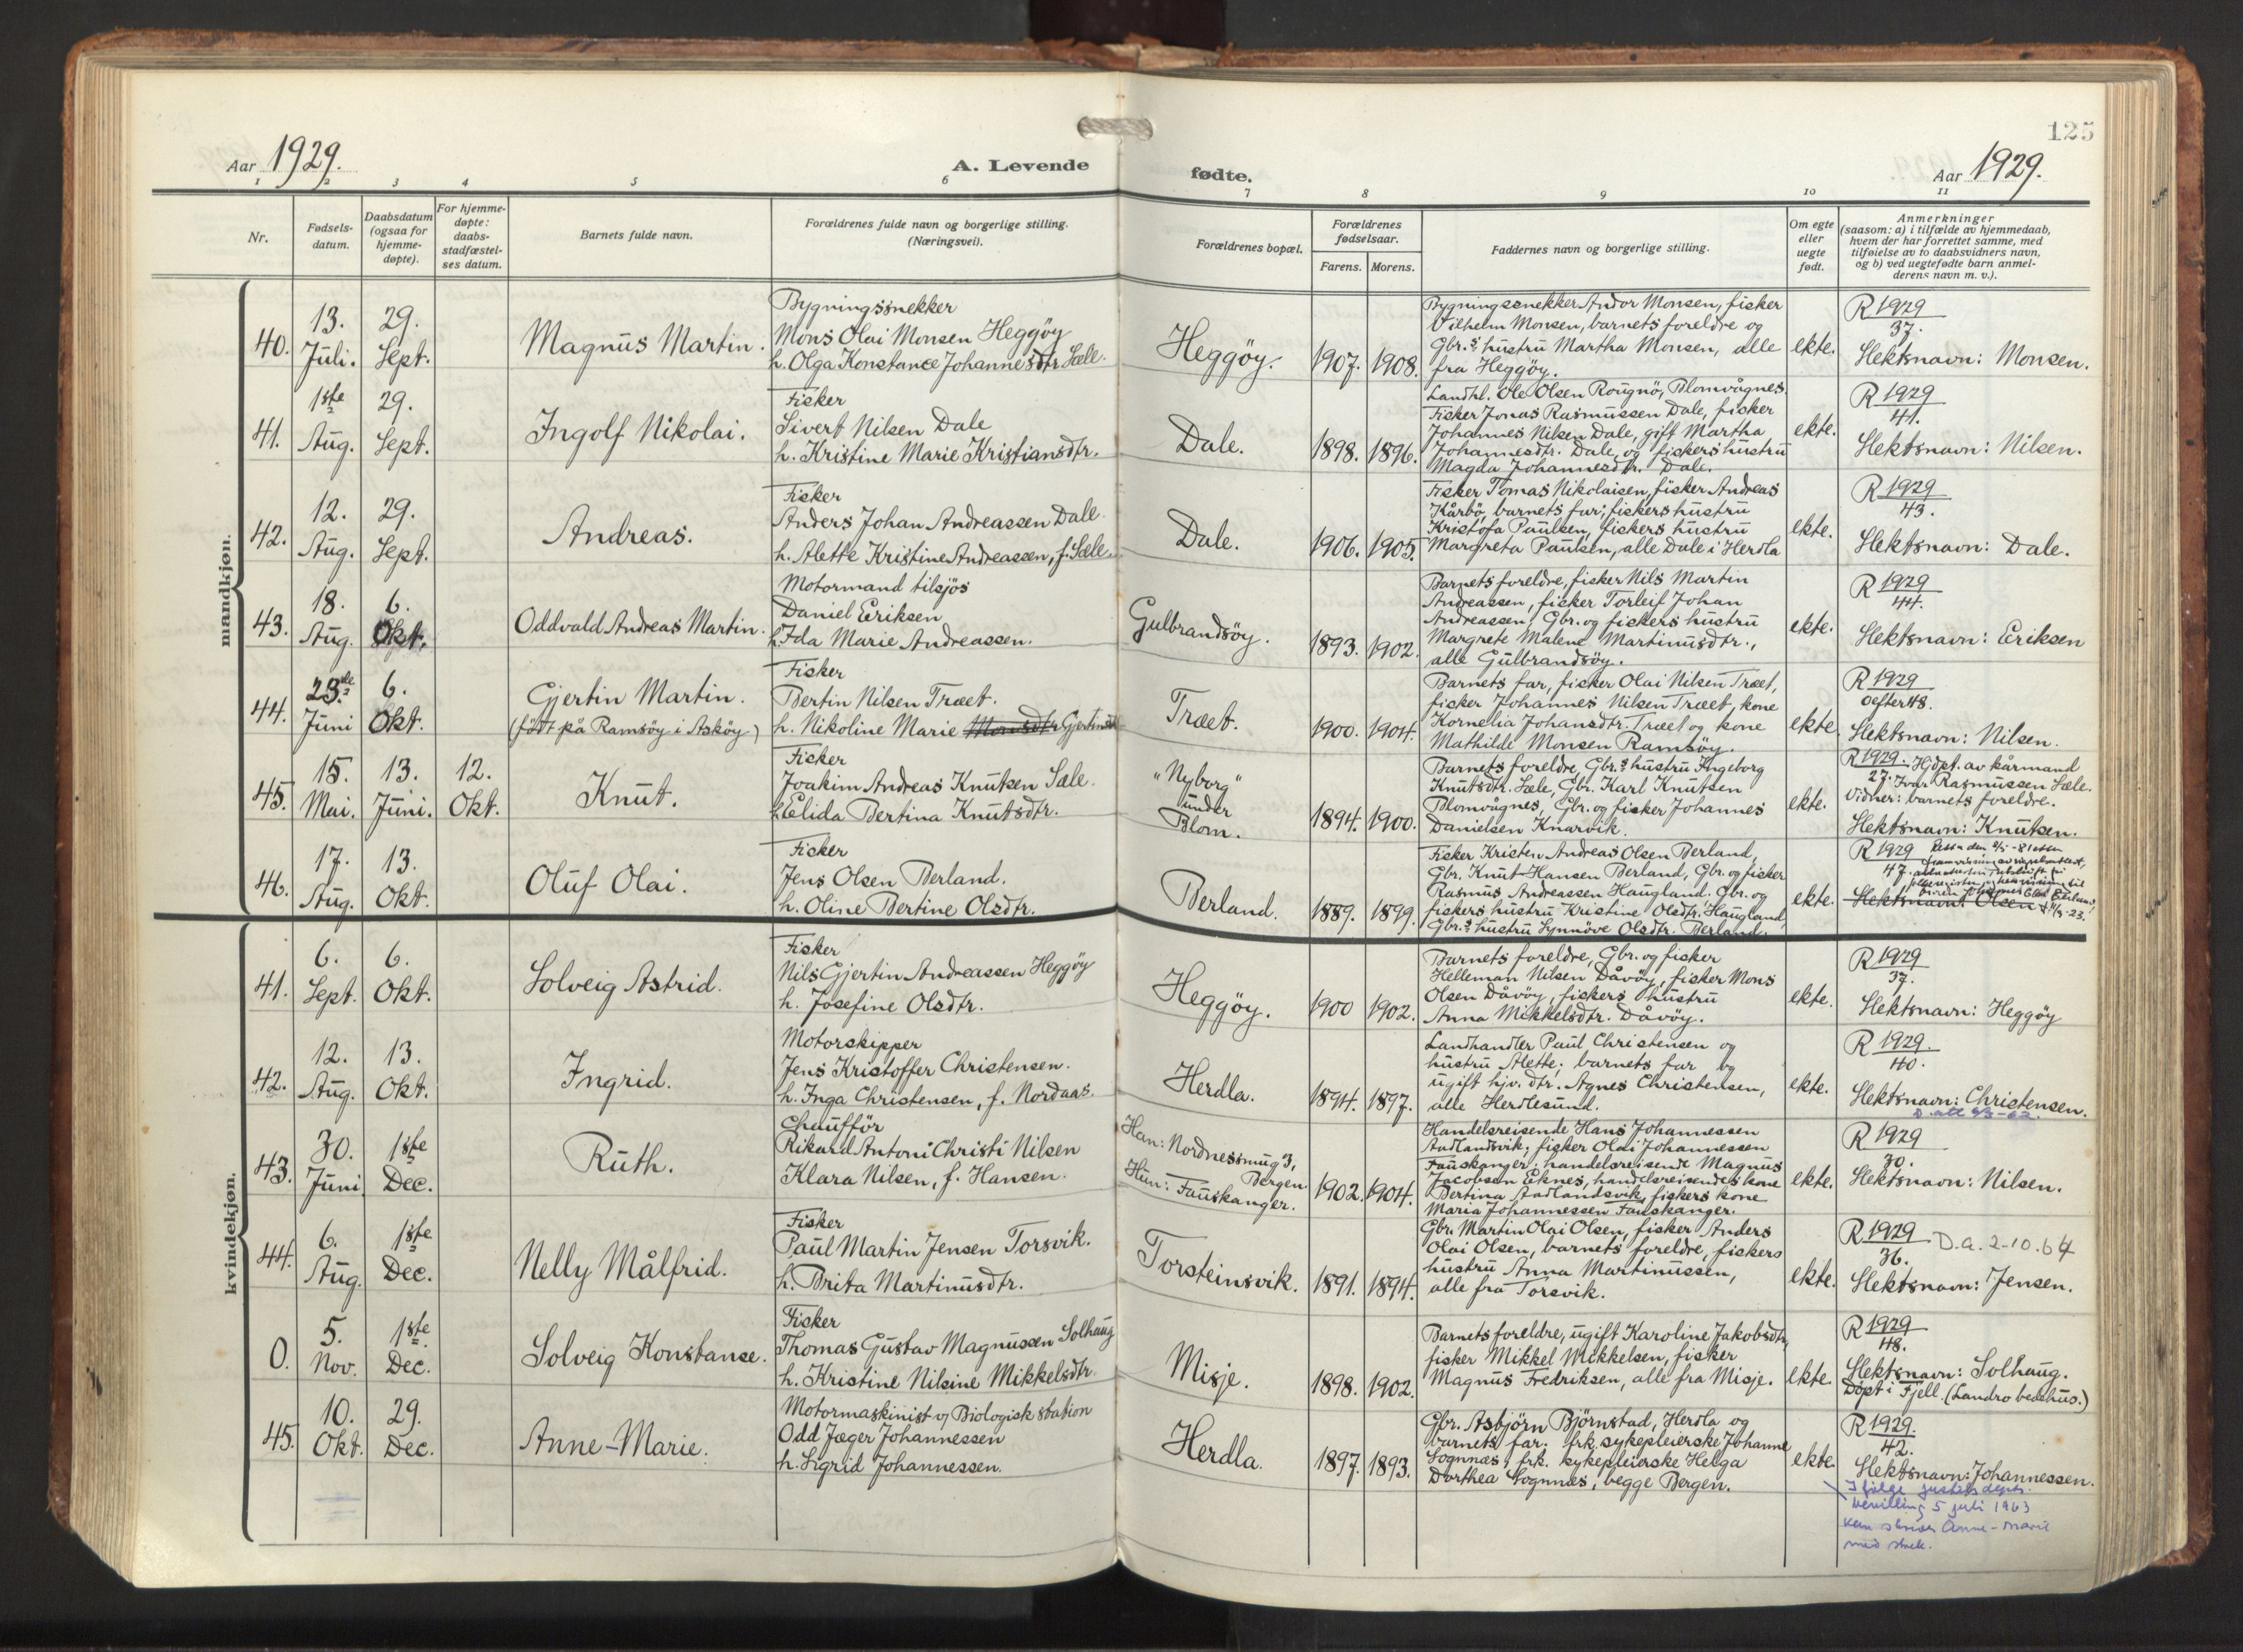 125
Aar 1929.
A. Levende
fødte.
Aar 1929.
1 2 3 4 5 6 7 8 9 10 11
Nr.
Fødsels-
datum.
Daabsdatum
(ogsaa for
hjemme-
døpte).
For hjemme-
døpte:
daabs-
stadfæstel-
ses datum.
Barnets fulde navn.
Forældrenes fulde navn og borgerlige stilling.
(Næringsvei).
Forældrenes bopæl.
Forældrenes
fødselsaar.
Farens. Morens.
Faddernes navn og borgerlige stilling.
Om egte
eller
uegte
født.
Anmerkninger
(saasom: a) i tilfælde av hjemmedaab,
hvem der har forrettet samme, med
tilføielse av to daabsvidners navn,
og b) ved uegtefødte barn anmel-
derens navn m. v.).
mandkjøn.
40.
13.
Juli.
29.
Sept.
Magnus Martin.
Bygningssnekker
Mons Olai Monsen Heggöy
h. Olga Konstance Johannesdtr Sæle.
Heggöy.
1907. 1908.
Bygningssnekker Andor Monsen, fisker
Vilhelm Monsen, barnets foreldre og
Gbr.s hustru Martha Monsen, alle
fra Heggöy.
ekte.
R 1929
37.
Slektsnavn: Monsen.
41.
1ste
Aug.
29.
Sept.
Ingolf Nikolai.
Fisker
Sivert Nilsen Dale
h. Kristine Marie Kristiansdtr.
Dale.
1898. 1896.
Landhl. Ole Olsen Rougnö, Blomvågnes.
Fisker Jonas Rasmussen Dale, fisker
Johannes Nilsen Dale, gift Martha
Johannesdtr. Dale, og fiskers hustru
Magda Johannesdtr. Dale.
ekte.
R 1929
41.
Slektsnavn: Nilsen.
42.
12.
Aug.
29.
Sept.
Andreas.
Fisker
Anders Johan Andreassen Dale.
h. Alette Kristine Andreassen, f. Sæle.
Dale.
1906. 1905.
Fisker Tomas Nikolaisen, fisker Andreas
Kårbö, barnets far; fiskers hustru
Kristofa Paulsen, fiskers hustru
Margreta Paulsen, alle Dale i Herdla
ekte.
R 1929
43.
Slektsnavn: Dale.
43.
18.
Aug.
6.
Okt.
Oddvald Andreas Martin.
Motormand tilsjös
Daniel Eriksen
h. Ida Marie Andreassen.
Gulbrandsöy.
1893. 1902.
Barnets foreldre, fisker Nils Martin
Andreassen, fisker Torleif Johan
Andreassen, Gbr. og fiskers hustru
Margrete Malene Martinusdtr.,
alle Gulbrandsöy.
ekte.
R 1929
44.
Slektsnavn: Eriksen
44.
23de
Juni
6.
Okt.
Gjertin Martin.
(födt på Ramsöy i Asköy.)
Fisker
Bertin Nilsen Træet.
h. Nikoline Marie Monsdtr Gjertinsdtr
Træet.
1900. 1904.
Barnets far, fisker Olai Nilsen Træet,
fisker Johannes Nilsen Træet, kone
Kornelia Johansdtr. Træet og kone
Mathilde Monsen Ramsöy.
ekte.
R 1929
Oefter 48.
Slektsnavn: Nilsen.
45.
15.
Mai.
13.
Juni.
12.
Okt.
Knut.
Fisker
Joakim Andreas Knutsen Sæle.
h. Elida Bertina Knutsdtr.
"Nyborg"
under
Blom.
1894. 1900.
Barnets foreldre, Gbr.s hustru Ingeborg
Knutsdtr. Sæle, Gbr. Karl Knutsen
Blomvågnes, Gbr. og fisker Johannes
Danielsen Knarvik.
ekte.
R 1929. Hjdpt. av kårmand
27. Ivar Rasmussen Sæle.
Vidner: barnets foreldre.
Slektsnavn: Knutsen.
46.
17.
Aug.
13.
Okt.
Oluf Olai.
Fisker
Jens Olsen Berland.
h. Oline Bertine Olsdtr.
Berland.
1889. 1899.
Fisker Kristen Andreas Olsen Berland,
Gbr. Knut Hansen Berland, Gbr. og fisker
Rasmus Andreassen Haugland. Gbr. og
fiskers hustru Kristine Olsdtr. Haugland
Gbr.s hustru Synnöve Olsdtr. Berland.
ekte.
R 1929
47.
Slektsnavn: Olsen
kvindekjøn.
41.
6.
Sept.
6.
Okt.
Solveig Astrid.
Fisker
Nils Gjertin Andreassen Heggöy
h. Josefine Olsdtr.
Heggöy.
1900 1902.
Barnets foreldre, Gbr. og fisker
Helleman Nilsen Dåvöy, fisker Mons
Olsen Dåvöy, fiskers hustru
Anna Mikkelsdtr. Dåvöy.
ekte.
R 1929
37.
Slektsnavn: Heggöy
42.
12.
Aug.
13.
Okt.
Ingrid.
Motorskipper
Jens Kristoffer Christensen.
h. Inga Christensen, f. Nordaas.
Herdla.
1894. 1897.
Landhandler Paul Christensen og
hustru Alette; barnets far og
ugift hjv. dtr. Agnes Christensen,
alle Herdlesund.
ekte.
R 1929.
40.
Slektsnavn: Christensen.
43.
30.
Juni
1ste
Dec.
Ruth.
Chaufför
Rikard Antoni Christi Nilsen
Klara Nilsen, f. Hansen.
Han: Nordnessmug 3,
Bergen.
Hun: Fauskanger.
1902. 1904.
Handelsreisende Hans Johannessen
Audlandsvik; fisker Olai Johannessen
Fauskanger; handelsreisende Magnus
Jacobsen Eknes, handelsreisendes kone
Bertina Audlandsvik, fiskers kone
Maria Johannessen Fauskanger.
ekte.
R 1929
30.
Slektsnavn: Nilsen.
44.
6.
Aug.
1ste
Dec.
Nelly Målfrid.
Fisker
Paul Martin Jensen Torsvik.
h. Brita Martinusdtr.
Torsteinsvik.
1891. 1894.
Gbr. Martin Olai Olsen, fisker Anders
Olai Olsen, barnets foreldre, fiskers
hustru Anna Martinussen,
alle fra Torsvik.
ekte.
R 1929 D.a. 2-10.64
36.
Slektsnavn: Jensen.
0.
5.
Nov.
1ste
Dec.
Solveig Konstanse.
Fisker
Thomas Gustav Magnussen Solhaug
h. Kristine Nilsine Mikkelsdtr.
Misje.
1898. 1902.
Barnets foreldre, ugift Karoline Jakobsdtr,
fisker Mikkel Mikkelsen, fisker
Magnus Fredriksen, alle fra Misje.
ekte.
R 1929
48.
Slektsnavn: Solhaug.
Döpt i Fjell. (Landro bedehus.)
45.
10.
Okt.
29.
Dec.
Anne-Marie.
Motormaskinist v/ Biologisk station
Odd Jæger Johannessen
h. Sigrid Johannessen.
Herdla.
1897. 1893.
Gbr. Asbjörn Björnstad, Herdla og
barnets far. frk. sykepleierske Johanne
Sognnæs, frk. sykepleierske Helga
Dorthea Sognnæs, begge Bergen.
ekte.
R 1929.
42.
Slektsnavn: Johannessen.
Ifølge justitsdepts.
bevilling 5 juli 1963
kan skrives Anne-Marie
med strek.